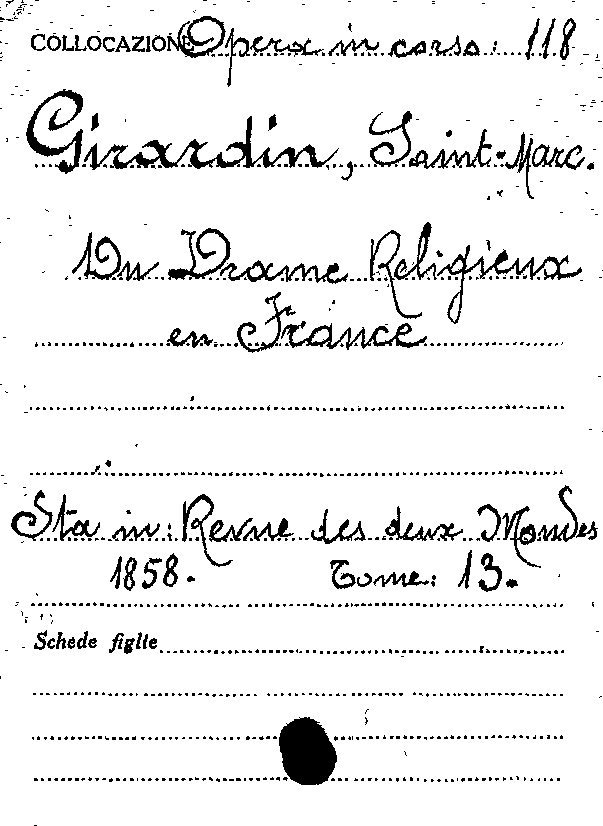 COLLOCAZIONE Opera in corso: 118
Girardin, Saint-Marc.
Du Drame Religieux
en France
Sta in: Revue des deux Mondes
1858. Tome: 13.
Schede figlie